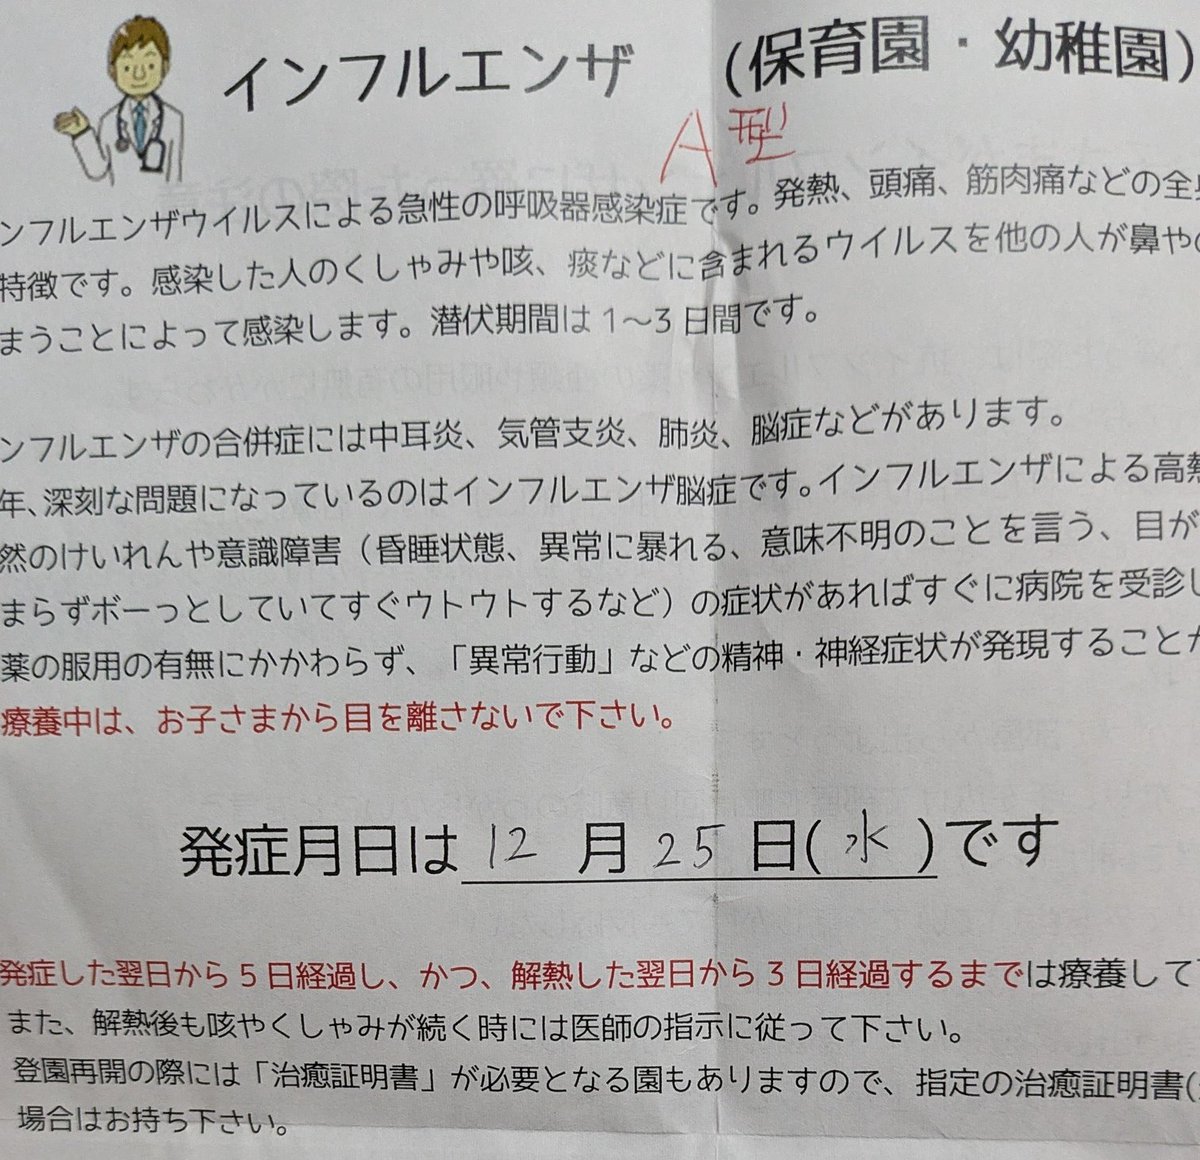 インフルエンザ (保育園・幼稚園)
A型
ンフルエンザウイルスによる急性の呼吸器感染症です。発熱、頭痛、筋肉痛などの全
特徴です。感染した人のくしゃみや咳、痰などに含まれるウイルスを他の人が鼻や
まうことによって感染します。潜伏期間は1～3日間です。
ンフルエンザの合併症には中耳炎、気管支炎、肺炎、脳症などがあります。
年、深刻な問題になっているのはインフルエンザ脳症です。インフルエンザによる高熱
然のけいれんや意識障害（昏睡状態、異常に暴れる、意味不明のことを言う、目が
まらずボーっとしていてすぐウトウトするなど）の症状があればすぐに病院を受診し
薬の服用の有無にかかわらず、「異常行動」などの精神・神経症状が発現することが
療養中は、お子さまから目を離さないで下さい。
発症月日は 12 月 25 日( 水 )です
発症した翌日から5日経過し、かつ、解熱した翌日から3日経過するまでは療養して
また、解熱後も咳やくしゃみが続く時には医師の指示に従って下さい。
登園再開の際には「治癒証明書」が必要となる園もありますので、指定の治癒証明書(
場合はお持ち下さい。